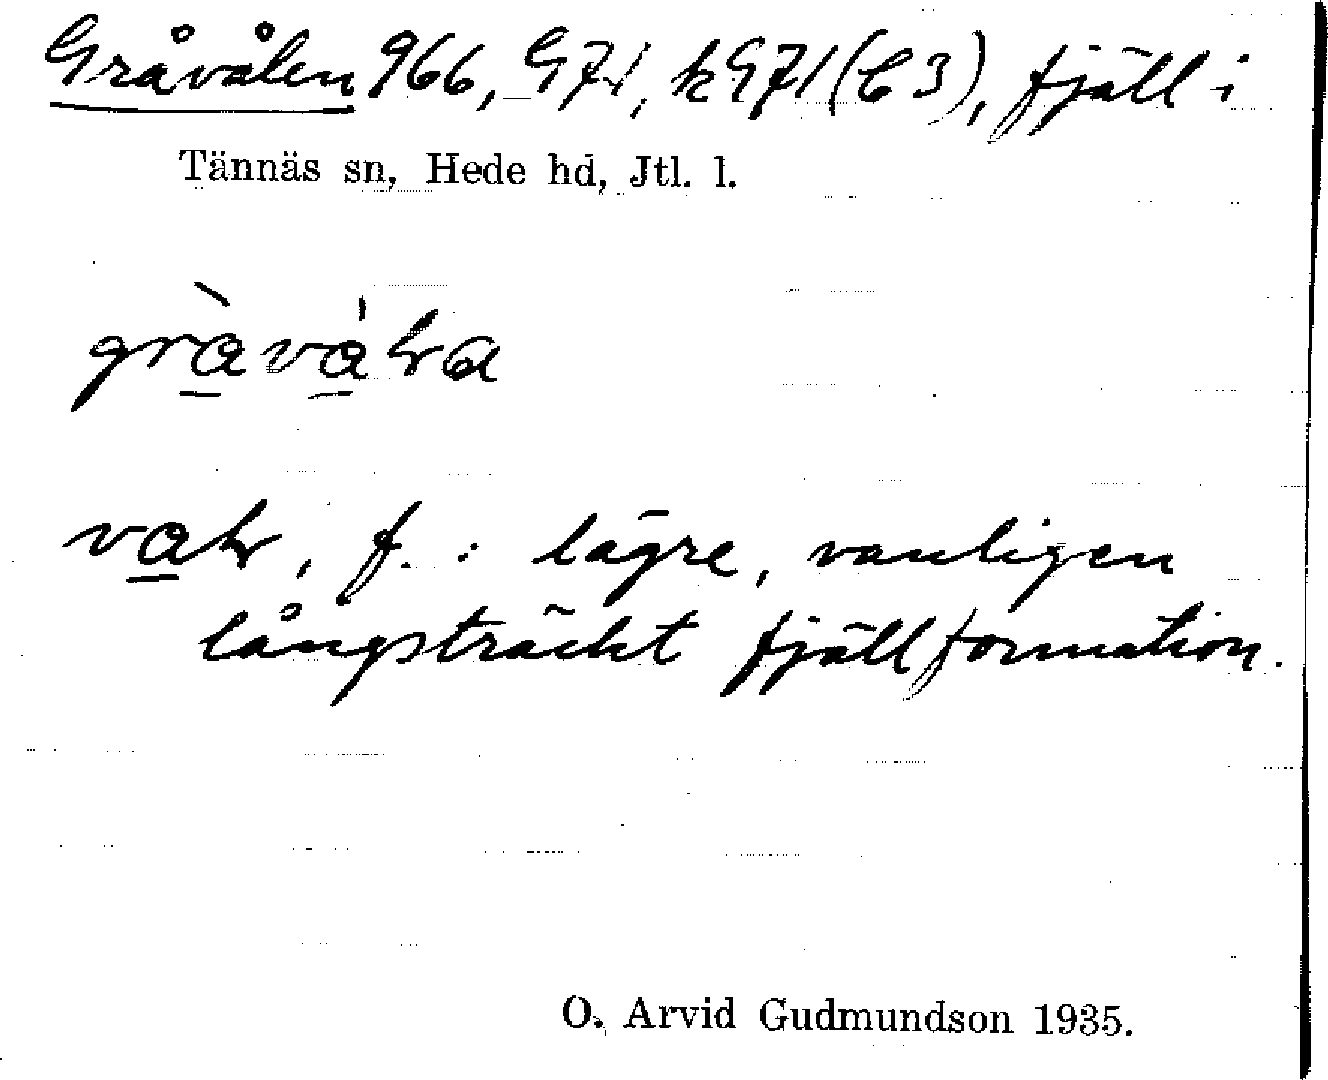 Gråvålen 966, G71, kG71 (C3), fjäll i
Tännäs sn, Hede hd, Jtl. l.
f. : lägre, vanligen
långsträckt fjällformation.
O. Arvid Gudmundson 1935.